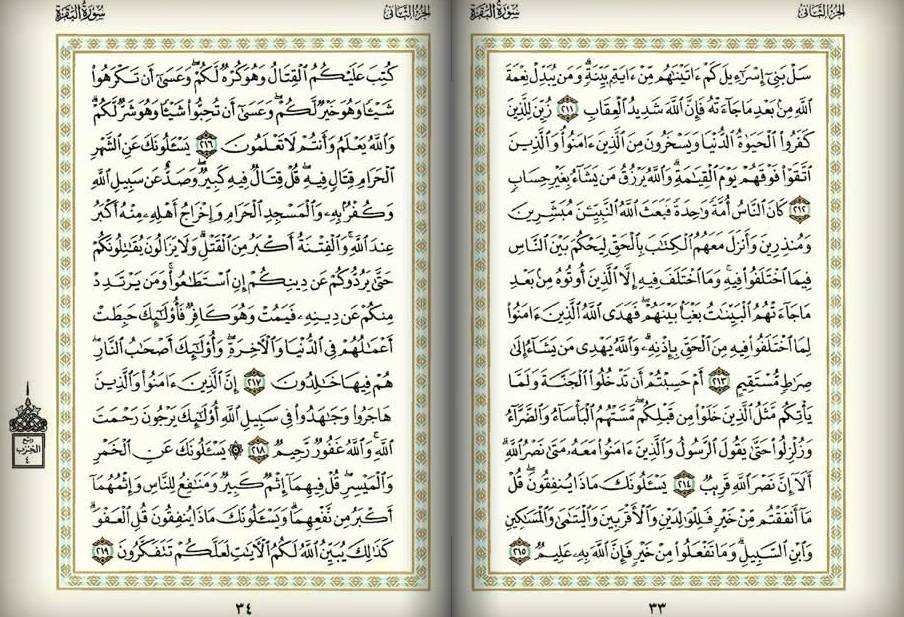 الجزء الثاني سورة البقرة
سَلْ بَنِىٓ إِسْرَٰٓءِيلَ كَمْ ءَاتَيْنَٰهُم مِّنْ ءَايَةٍۭ بَيِّنَةٍۗ وَمَن يُبَدِّلْ نِعْمَةَ
ٱللَّهِ مِنۢ بَعْدِ مَا جَآءَتْهُ فَإِنَّ ٱللَّهَ شَدِيدُ ٱلْعِقَابِ ٢١١ زُيِّنَ لِلَّذِينَ
كَفَرُوا۟ ٱلْحَيَوٰةُ ٱلدُّنْيَا وَيَسْخَرُونَ مِنَ ٱلَّذِينَ ءَامَنُوا۟ۘ وَٱلَّذِينَ
ٱتَّقَوْا۟ فَوْقَهُمْ يَوْمَ ٱلْقِيَٰمَةِۗ وَٱللَّهُ يَرْزُقُ مَن يَشَآءُ بِغَيْرِ حِسَابٍ
٢١٢ كَانَ ٱلنَّاسُ أُمَّةً وَٰحِدَةً فَبَعَثَ ٱللَّهُ ٱلنَّبِيِّـۧنَ مُبَشِّرِينَ
وَمُنذِرِينَ وَأَنزَلَ مَعَهُمُ ٱلْكِتَٰبَ بِٱلْحَقِّ لِيَحْكُمَ بَيْنَ ٱلنَّاسِ
فِيمَا ٱخْتَلَفُوا۟ فِيهِۚ وَمَا ٱخْتَلَفَ فِيهِ إِلَّا ٱلَّذِينَ أُوتُوهُ مِنۢ بَعْدِ
مَا جَآءَتْهُمُ ٱلْبَيِّنَٰتُ بَغْيًۢا بَيْنَهُمْۖ فَهَدَى ٱللَّهُ ٱلَّذِينَ ءَامَنُوا۟
لِمَا ٱخْتَلَفُوا۟ فِيهِ مِنَ ٱلْحَقِّ بِإِذْنِهِۦۗ وَٱللَّهُ يَهْدِى مَن يَشَآءُ إِلَىٰ
صِرَٰطٍ مُّسْتَقِيمٍ ٢١٣ أَمْ حَسِبْتُمْ أَن تَدْخُلُوا۟ ٱلْجَنَّةَ وَلَمَّا
يَأْتِكُم مَّثَلُ ٱلَّذِينَ خَلَوْا۟ مِن قَبْلِكُمۖ مَّسَّتْهُمُ ٱلْبَأْسَآءُ وَٱلضَّرَّآءُ
وَزُلْزِلُوا۟ حَتَّىٰ يَقُولَ ٱلرَّسُولُ وَٱلَّذِينَ ءَامَنُوا۟ مَعَهُۥ مَتَىٰ نَصْرُ ٱللَّهِۗ
أَلَآ إِنَّ نَصْرَ ٱللَّهِ قَرِيبٌ ٢١٤ يَسْـَٔلُونَكَ مَاذَا يُنفِقُونَۖ قُلْ
مَآ أَنفَقْتُم مِّنْ خَيْرٍ فَلِلْوَٰلِدَيْنِ وَٱلْأَقْرَبِينَ وَٱلْيَتَٰمَىٰ وَٱلْمَسَٰكِينِ
وَٱبْنِ ٱلسَّبِيلِۗ وَمَا تَفْعَلُوا۟ مِنْ خَيْرٍ فَإِنَّ ٱللَّهَ بِهِۦ عَلِيمٌ ٢١٥
٣٣
الجزء الثاني سورة البقرة
كُتِبَ عَلَيْكُمُ ٱلْقِتَالُ وَهُوَ كُرْهٌ لَّكُمْۖ وَعَسَىٰٓ أَن تَكْرَهُوا۟
شَيْـًٔا وَهُوَ خَيْرٌ لَّكُمْۖ وَعَسَىٰٓ أَن تُحِبُّوا۟ شَيْـًٔا وَهُوَ شَرٌّ لَّكُمْۗ
وَٱللَّهُ يَعْلَمُ وَأَنتُمْ لَا تَعْلَمُونَ ٢١٦ يَسْـَٔلُونَكَ عَنِ ٱلشَّهْرِ
ٱلْحَرَامِ قِتَالٍ فِيهِۖ قُلْ قِتَالٌ فِيهِ كَبِيرٌۖ وَصَدٌّ عَن سَبِيلِ ٱللَّهِ
وَكُفْرٌۢ بِهِۦ وَٱلْمَسْجِدِ ٱلْحَرَامِ وَإِخْرَاجُ أَهْلِهِۦ مِنْهُ أَكْبَرُ
عِندَ ٱللَّهِۚ وَٱلْفِتْنَةُ أَكْبَرُ مِنَ ٱلْقَتْلِۗ وَلَا يَزَالُونَ يُقَٰتِلُونَكُمْ
حَتَّىٰ يَرُدُّوكُمْ عَن دِينِكُمْ إِنِ ٱسْتَطَٰعُوا۟ۚ وَمَن يَرْتَدِدْ
مِنكُمْ عَن دِينِهِۦ فَيَمُتْ وَهُوَ كَافِرٌ فَأُو۟لَٰٓئِكَ حَبِطَتْ
أَعْمَٰلُهُمْ فِى ٱلدُّنْيَا وَٱلْـَٔاخِرَةِۖ وَأُو۟لَٰٓئِكَ أَصْحَٰبُ ٱلنَّارِۖ
هُمْ فِيهَا خَٰلِدُونَ ٢١٧ إِنَّ ٱلَّذِينَ ءَامَنُوا۟ وَٱلَّذِينَ
هَاجَرُوا۟ وَجَٰهَدُوا۟ فِى سَبِيلِ ٱللَّهِ أُو۟لَٰٓئِكَ يَرْجُونَ رَحْمَتَ
ٱللَّهِۚ وَٱللَّهُ غَفُورٌ رَّحِيمٌ ٢١٨ ۞ يَسْـَٔلُونَكَ عَنِ ٱلْخَمْرِ
وَٱلْمَيْسِرِۖ قُلْ فِيهِمَآ إِثْمٌ كَبِيرٌ وَمَنَٰفِعُ لِلنَّاسِ وَإِثْمُهُمَآ
أَكْبَرُ مِن نَّفْعِهِمَاۗ وَيَسْـَٔلُونَكَ مَاذَا يُنفِقُونَ قُلِ ٱلْعَفْوَۗ
كَذَٰلِكَ يُبَيِّنُ ٱللَّهُ لَكُمُ ٱلْـَٔايَٰتِ لَعَلَّكُمْ تَتَفَكَّرُونَ ٢١٩
ربع
الحزب
٤
٣٤